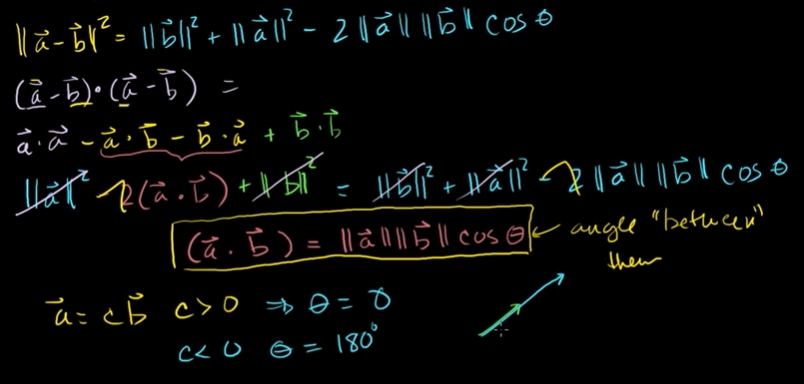 ‖a⃗ - b⃗‖² = ‖b⃗‖² + ‖a⃗‖² - 2 ‖a⃗‖ ‖b⃗‖ cos θ
(a⃗ - b⃗) · (a⃗ - b⃗) =
a⃗ · a⃗ - a⃗ · b⃗ - b⃗ · a⃗ + b⃗ · b⃗
‖a⃗‖² - 2(a⃗ · b⃗) + ‖b⃗‖² = ‖b⃗‖² + ‖a⃗‖² - 2 ‖a⃗‖ ‖b⃗‖ cos θ
(a⃗ · b⃗) = ‖a⃗‖ ‖b⃗‖ cos θ ← angle "between"
them
a⃗ = c b⃗ c > 0 ⇒ θ = 0
c < 0 θ = 180°